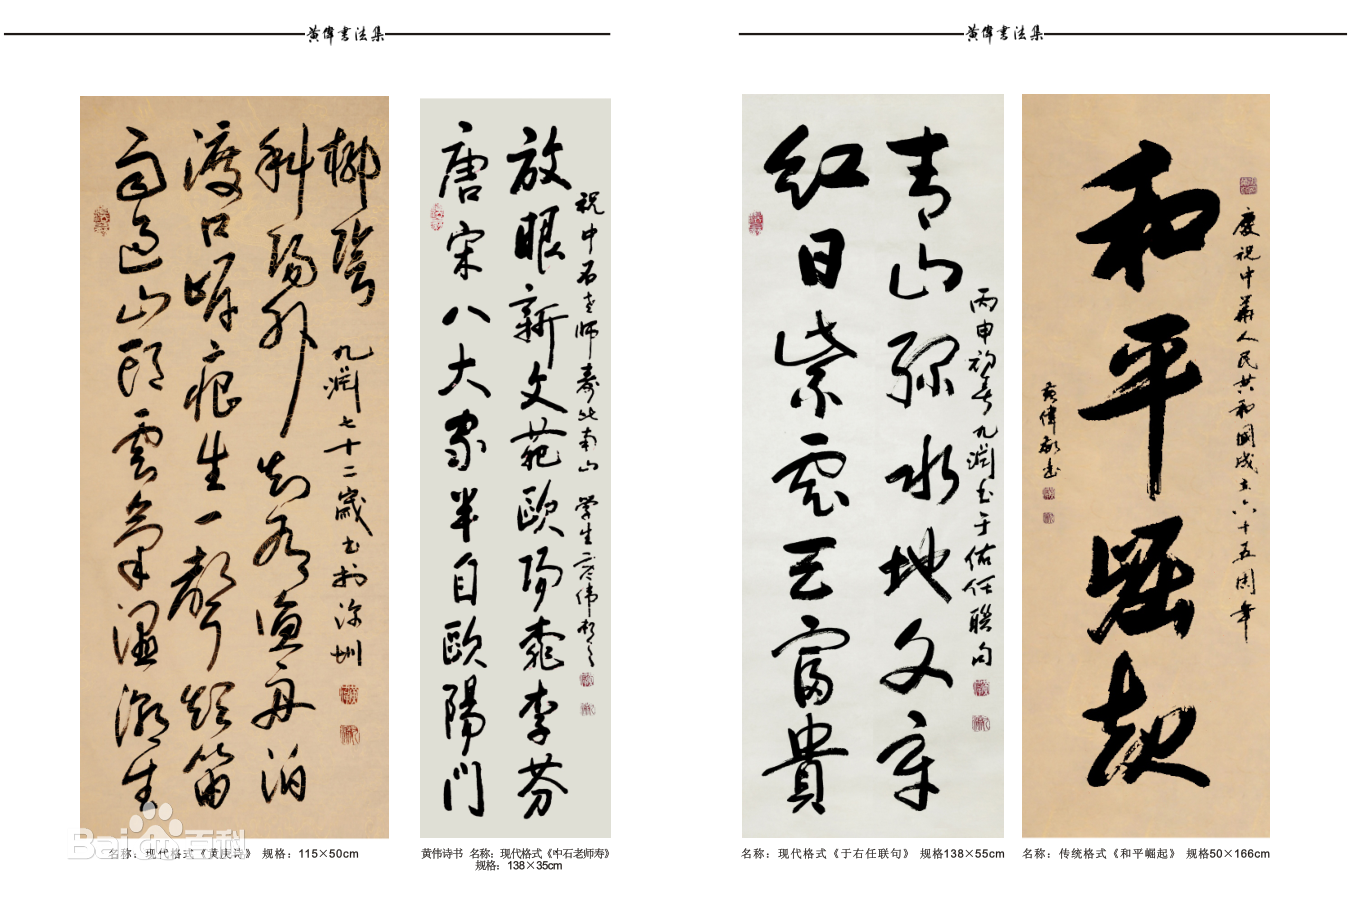 黄偉書法集
雨過山頭雲氣濕潮生
渡口岸痕生一聲短笛
斜陽外知有漁舟泊
柳灣
九渊七十二歲书於深圳
名称：现代格式《黄庚诗》 规格：115×50cm
唐宋八大家半自歐陽門
放眼新文苑歐陽桃李芬
祝中石老师寿比南山 学生黄伟敬书
黄伟诗书 名称：现代格式《中石老师寿》
规格：138×35cm
黄偉書法集
紅日紫霞天富貴
青山緑水地文章
丙申初春九渊书于佑任联句
名称：现代格式《于右任联句》 规格138×55cm
慶祝中華人民共和國成立六十五周年
和平崛起
黄偉敬书
名称：传统格式《和平崛起》 规格50×166cm
Bai 百科